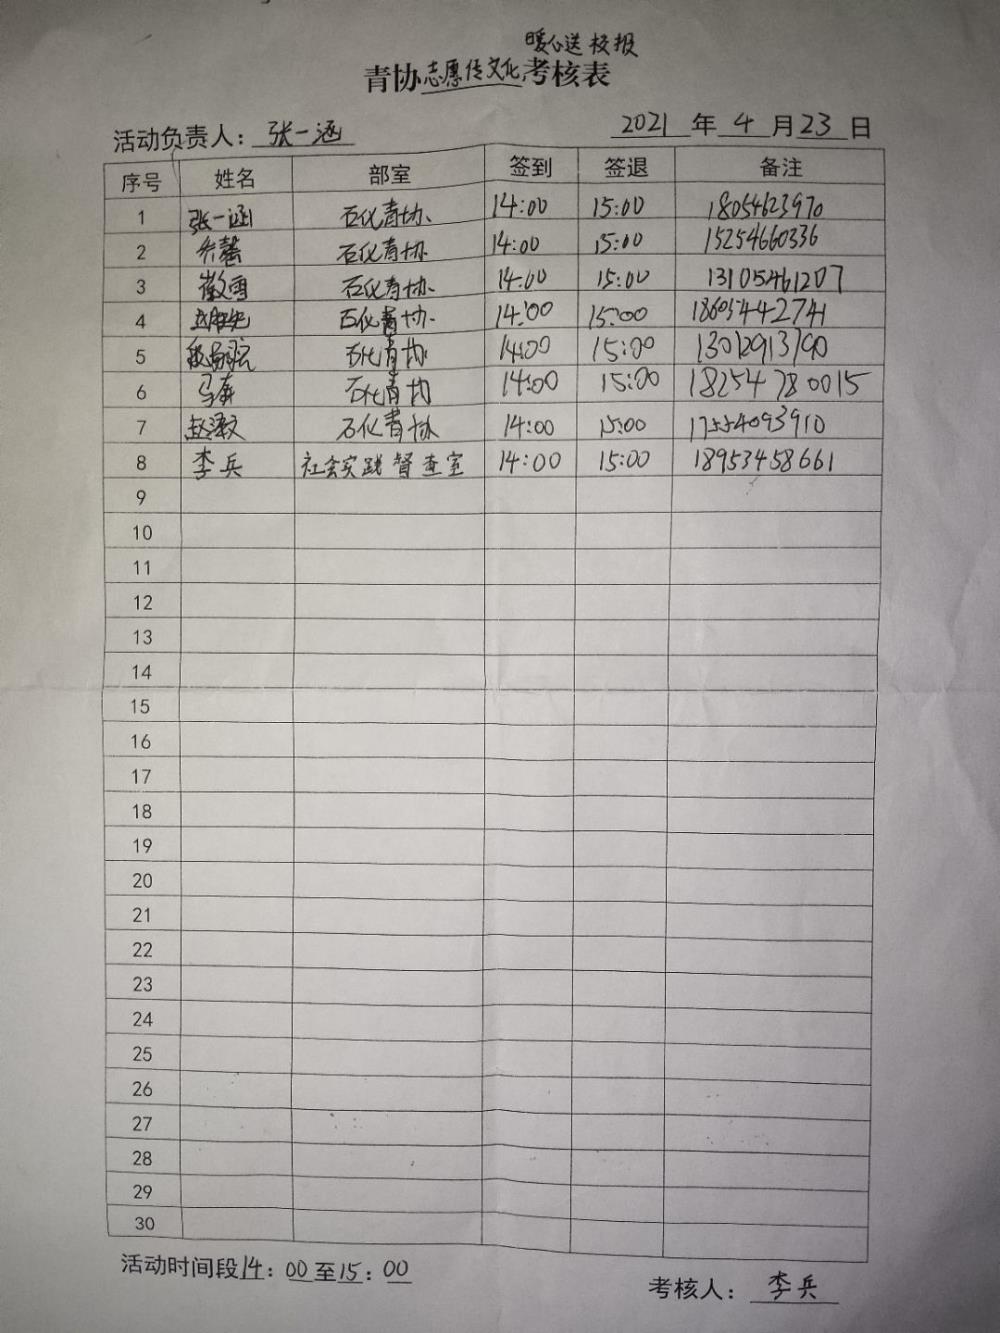 暖心送校报
青协志愿传文化,考核表
活动负责人：张一涵 2021 年 4 月 23 日
序号 姓名 部室 签到 签退 备注
1 张一涵 石化青协. 14:00 15:00 18054623970
2 乔馨 石化青协 14:00 15:00 15254660336
3 徵雪 石化青协. 14:00 15:00 13105461207
4 石化青协. 14:00 15:00 18605442741
5 石化青协 14:00 15:00 13012913790
6 马森 石化青协 14:00 15:00 18254780015
7 赵泽文 石化青协 14:00 15:00 17554093910
8 李兵 社会实践督查室 14:00 15:00 18953458661
9
10
11
12
13
14
15
16
17
18
19
20
21
22
23
24
25
26
27
28
29
30
活动时间段14：00至15：00
考核人：李兵